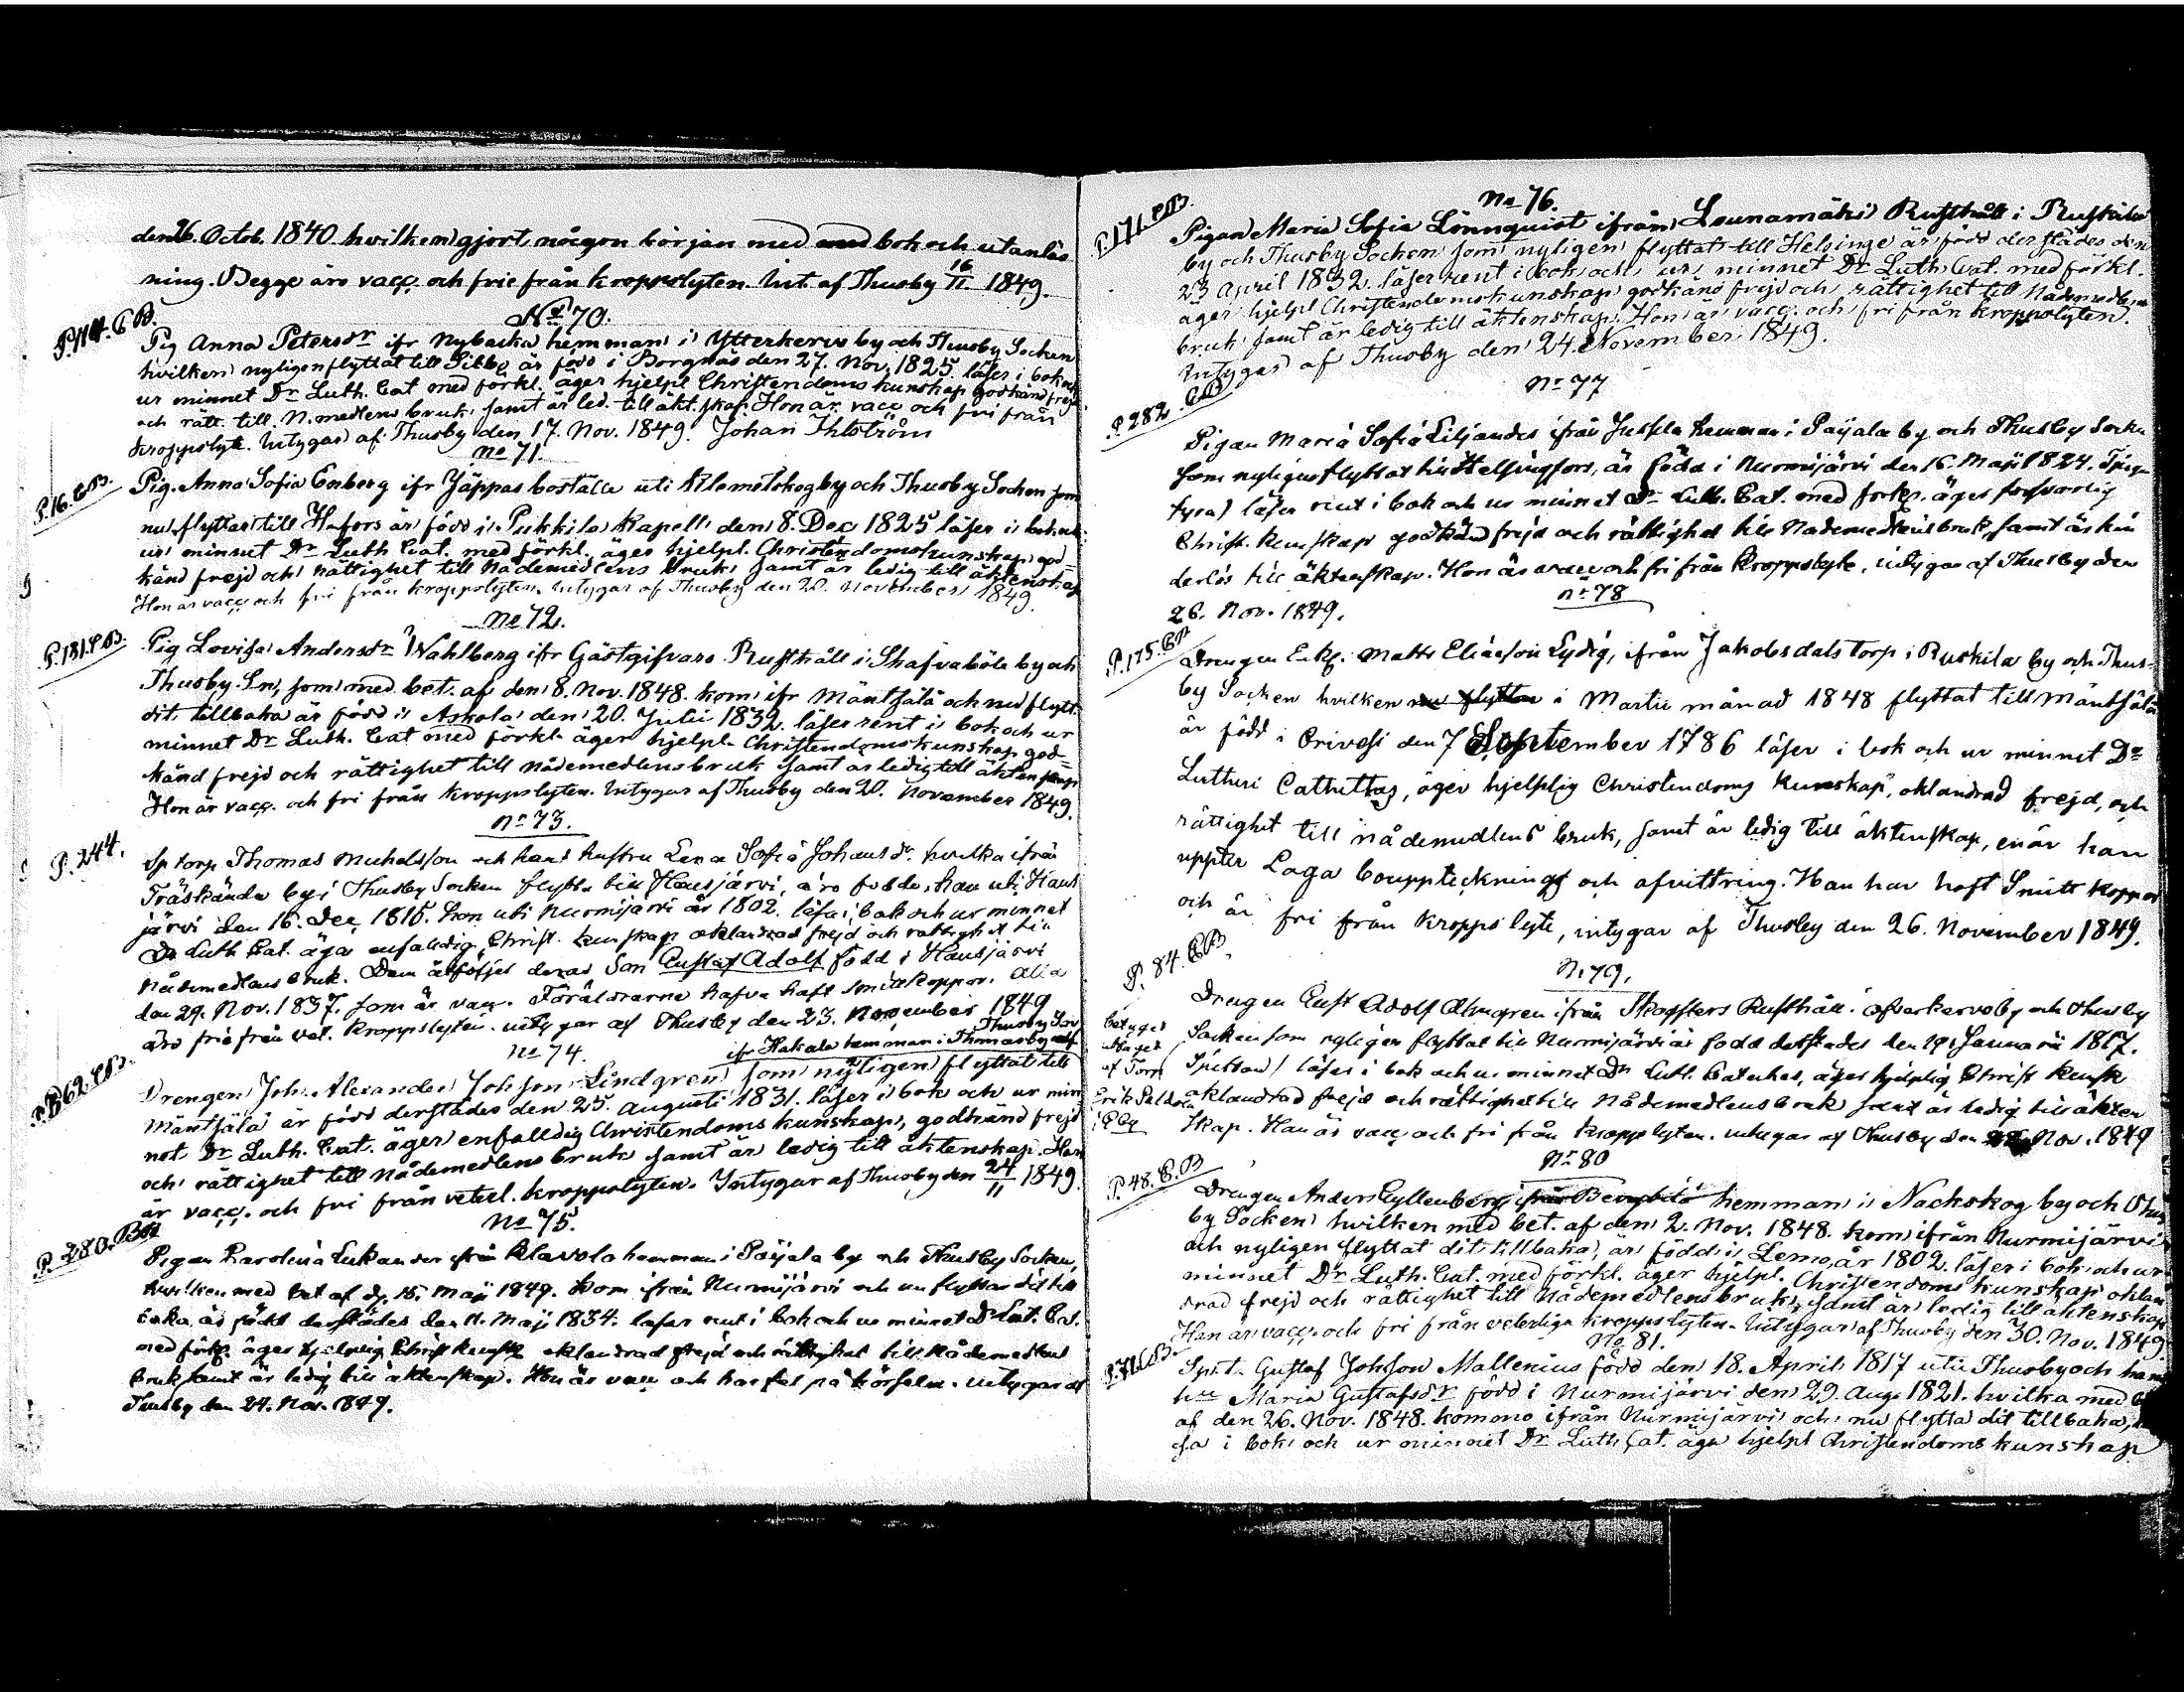 den 26. Octob. 1840 hvilken gjort någon början med bok och utanläs
ning. Begge äro vacc. och frie från kroppslyten. Int. af Thusby 16/11 1849.
P. 114. C.B.
No 70.
Pig Anna Petersdr ifr Nybacka hemman i Ytterkervo by och Thusby Socken
hvilken nyligen flyttat till Sibbo är född i Borgnäs den 27. Nov. 1825. läser i bok och
ur minnet Dr Luth. Cat med förkl. äger hjelpl. Christendoms kunskap godkänd frejd
och rätt. till N. medlens bruk, samt är led. till äkt.skap. Hon är vacc och fri från
kroppslyte. Intygar af Thusby den 17. Nov. 1849. Johan Ihlström
No 71.
P. 16. C.B.
Pig. Anna Sofia Enberg ifr Jäppas boställe uti Klemetskog by och Thusby Socken som
nu flyttar till H.fors är född i Pukkila Kapell den 8. Dec 1825 läser i bok och
ur minnet Dr Luth Cat. med förkl., äger hjelpl. Christendomskunskap god-
känd frejd och rättighet till Nådemedlens bruk, samt är ledig till äktensk.
Hon är vacc och fri från kroppslyten. Intygar af Thusby den 20. November 1849.
No 72.
P. 131. C.B.
Pig Lovisa Andersdr Wahlberg ifr Gästgifvars Rusthåll i Skafvaböle by och
Thusby Sn, som med bet. af den 8. Nov. 1848. kom ifr Mäntsälä och nu flytt.
dit tillbaka är född i Askola den 20. Julii 1832. läser rent i bok och ur
minnet Dr Luth. Cat med förkl. äger hjelpl. Christendomskunskap god-
känd frejd och rättighet till nådemedlens bruk samt är ledig till äktenskap
Hon är vacc. och fri från kroppslyten. Intygar af Thusby den 20. November 1849.
No 73.
P. 244.
Sp torp Thomas Michelsson och hans hustru Lena Sofia Johansdr hvilka ifrån
Träskända by i Thusby Socken flytta till Hausjärvi, äro födde, han uti Haus
järvi den 16. Dec. hon uti Nurmijärvi år 1802. läsa i bok och ur minnet
Dr Luth Cat. äga enfaldig Christ. kunskap oklandrad frejd och rättighet till
Nådemedlens bruk. Dem åtföljer deras Son Gustaf Adolf född i Hausjärvi
den 29. Nov. 1837. som är vacc. Föräldrarne hafva haft smittkoppor. Alla
äro frie från vet. kroppslyten. intygar af Thusby den 23. November 1849
No 74.
ifr Hakala hemman i Thomasby och Thusby Sn
P. 362. C.B.
Drengen Joh. Alexander Johsson Lindgren som nyligen flyttat till
Mäntsälä är född derstädes den 25. Augusti 1831. läser i bok och ur min
net Dr Luth. Cat. äger enfalldig Christendoms kunskap, godkänd frejd
och rättighet till Nådemedlens bruk samt är ledig till äktenskap. Han
är vacc. och fri från veterl. kroppslyten. Intygar af Thusby den 24/11 1849.
No 75.
P. 280.
Pigan Karolina Lukander ifrån Klavola hemman i Paijala by och Thusby Socken,
hvilken med bet af d. 15. Maji 1849. kom ifrån Nurmijärvi och nu flyttar dit till
baka, är född derstädes den 11. Maji 1834. läser rent i bok och ur minnet Dr Lut. Cat.
med förkl. äger hjelplig Christ kunsk oklandrad frejd och rättighet till Nådemedlens
bruk samt är ledig till äktenskap. Hon är vacc och har fel på hörseln. intygar af
Thusby den 24. Nov. 1849.
No 76.
P. 171. C.B.
Pigan Maria Sofia Lönnquist ifrån Lounamäki Rusthåll i Ruskila
by och Thusby Socken som nyligen flyttat till Helsinge är född derstädes den
23 April 1832. läser rent i bok och ur minnet Dr Luth. Cat. med förkl.
äger hjelpl Christendomskunskap godkänd frejd och rättighet till Nådemedlens
bruk samt är ledig till äktenskap. Hon är vacc. och fri från kroppslyten.
Intygas af Thusby den 24. November 1849.
No 77
P. 282. C.B.
Pigan Maria Sofia Liljander ifrån Jussila hemman i Paijala by och Thusby Socken
som nyligen flyttat till Helsingfors, är född i Nurmijärvi den 16. Maji 1824.
läser rent i bok och ur minnet Dr Luth. Cat. med förkl. äger försvarlig
Christ. kunskap godkänd frejd och rättighet till Nådemedlens bruk, samt är hin
derlös till äktenskap. Hon är vacc och fri från kroppslyte, intygar af Thusby den
26. Nov. 1849.
No 78
P. 175. C.B.
Drengen Enkl. Matts Eliasson Lydig, ifrån Jakobsdals torp i Ruskila by och Thus-
by Socken hvilken nu flyttar i Martii månad 1848 flyttat till Mäntsälä
är född i Orivesi den 7 September 1786 läser i bok och ur minnet Dr
Lutheri Catheches, äger hjelplig Christendoms kunskap, oklandrad frejd, och
rättighet till nådemedlens bruk, samt är ledig till äktenskap, enär han
uppter Laga bouppteckning och afvittring. Han har haft Smitt koppor
och är fri från kropps lyte, intygar af Thusby den 26. November 1849.
No 79.
P. 84. C.B.
Drengen Gust Adolf Almgren ifrån Skopsters Rusthåll i Ofverkervoby och Thusby
Socken som nyligen flyttat till Nurmijärvi är född derstädes den 19. Januarii 1817.
läser i bok och ur minnet Dr Luth. Cateches, äger hjelplig Christ kunsk
oklandrad frejd och rättighet till Nådemedlens bruk samt är ledig till äkten
skap. Han är vacc och fri från kroppslyten. intygar af Thusby den Nov. 1849
betyget
uttaget
af Torp
Erik
No 80
P. 48. C.B.
Drengen Anders Gyllenberg ifrån hemman i Nachskog by och Thus
by Socken hvilken med bet. af den 2. Nov. 1848. kom ifrån Nurmijärvi
och nyligen flyttat dit tillbaka, är född i Lemo, år 1802. läser i bok och ur
minnet Dr Luth. Cat. med förkl. äger hjelpl. Christendoms kunskap oklan
drad frejd och rättighet till Nådemedlens bruk, samt är ledig till äktenskap
Han är vacc. och fri från veterliga kroppslyten. Intygar af Thusby den 30. Nov. 1849
No 81.
Gustaf Johsson Mallenius född den 18. April 1817 uti Thusby och hans
hu Maria Gustafsdr född i Nurmijärvi den 29. Aug. 1821. hvilka med
af den 26. Nov. 1848. kommo ifrån Nurmijärvi och nu flytta dit tillbaka,
sa i bok och ur minnet Dr Luth Cat. äga hjelpl Christendoms kunskap